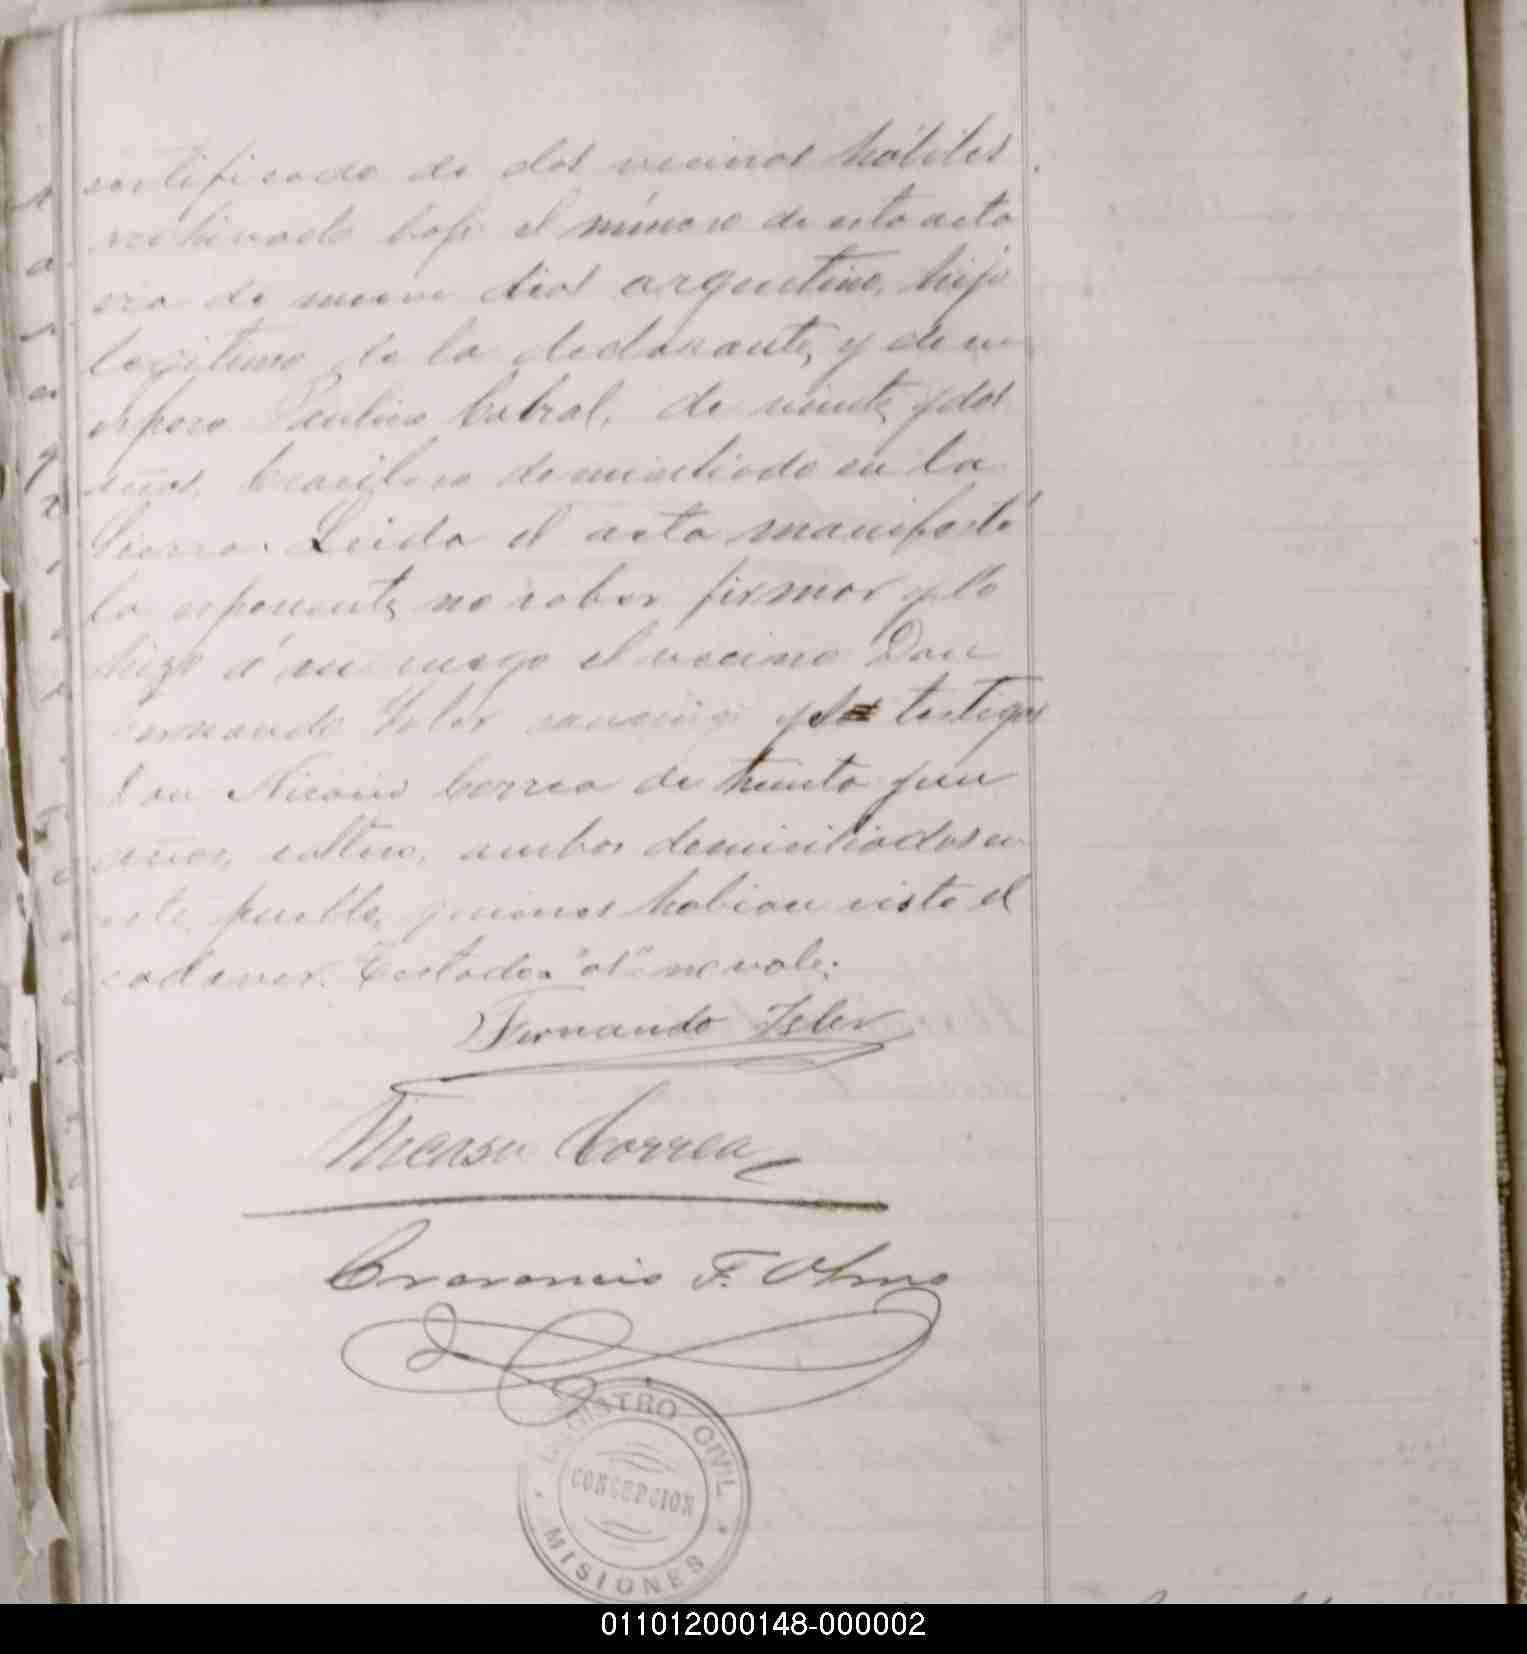 certificado de dos vecinos hábiles
archivado bajo el número de esta acta
era de nueve dias argentino, hijo
legitimo de la declarante, y de su
esposo Paulino Cabral, de veinte y dos
años, brasilero domiciliado en la
Sierra. Leida el acta manifestó
la esponente no saber firmar y lo
hizo á su ruego el vecino Don
Fernando Isler y el testigo
Don Nicasio Correa de treinta y un
años, soltero, ambos domiciliados en
este pueblo, quienes habian visto el
cadaver. Testado: "os" no vale:
Fernando Isler
Nicasio Correa
F. Olmo
REGISTRO CIVIL
CONCEPCION
MISIONES
011012000148-000002